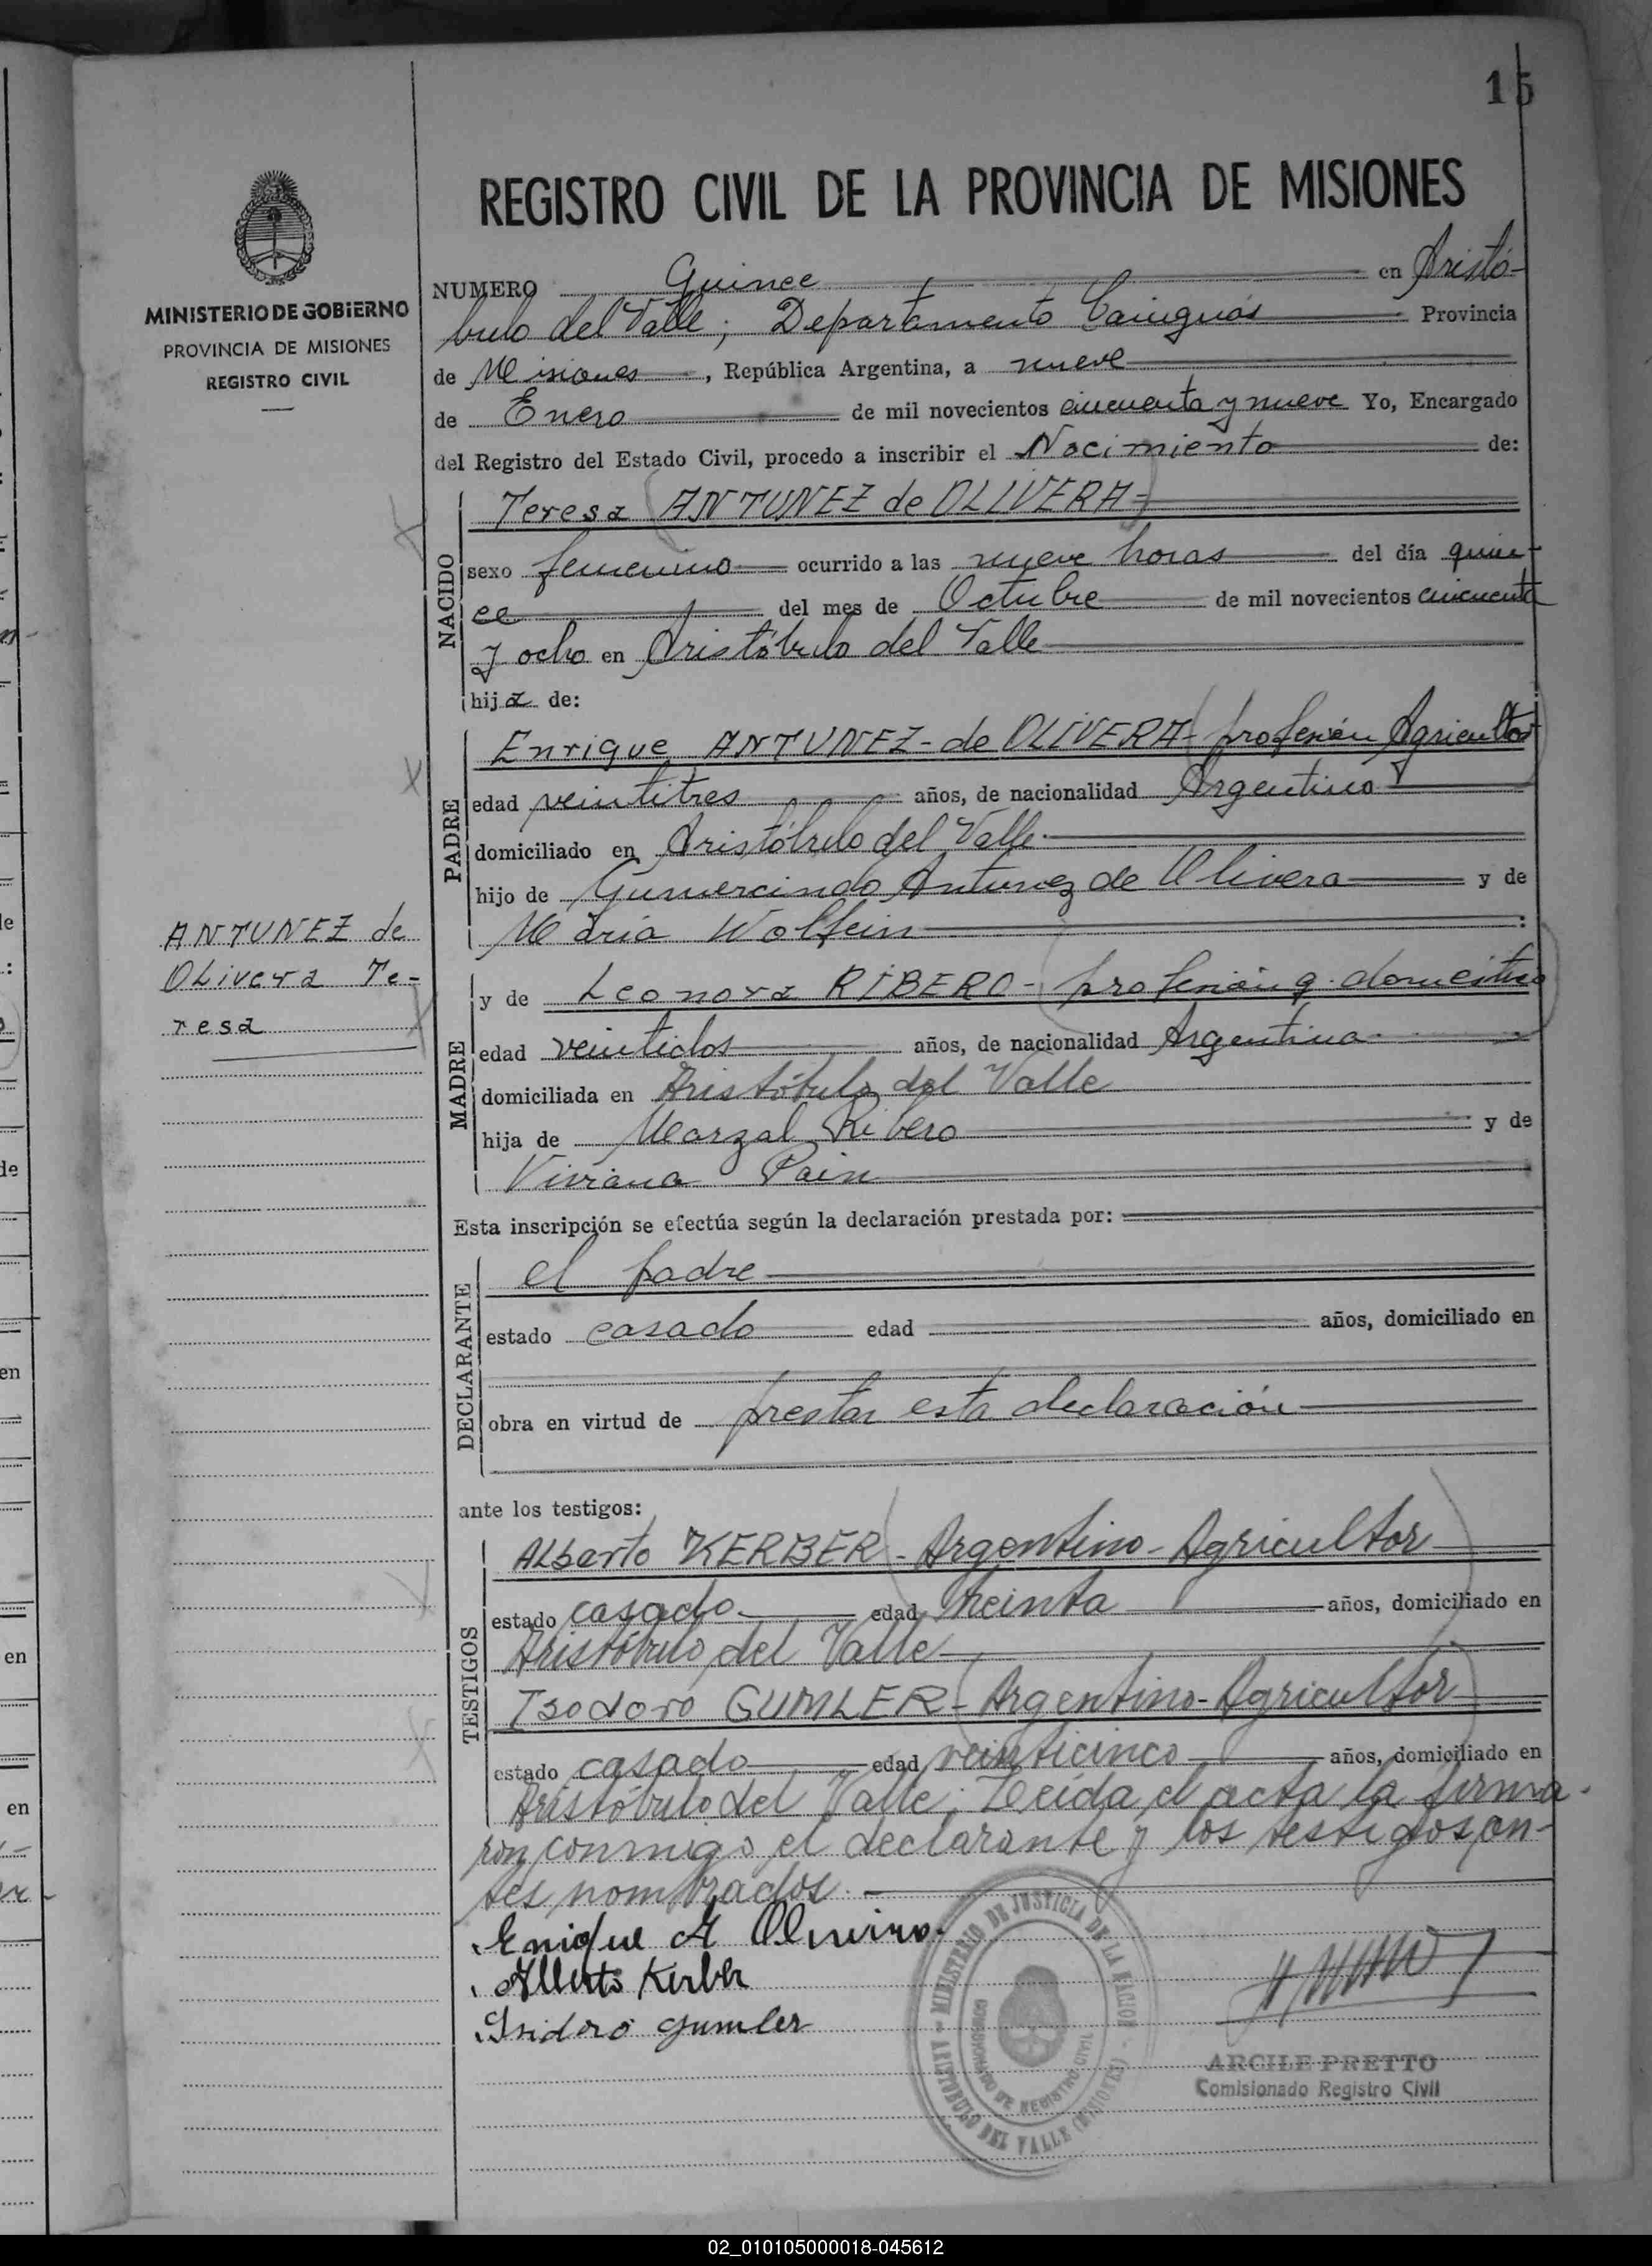 15
REGISTRO CIVIL DE LA PROVINCIA DE MISIONES
MINISTERIO DE GOBIERNO
PROVINCIA DE MISIONES
REGISTRO CIVIL
NUMERO Quince en Aristó-
bulo del Valle; Departamento Cainguás Provincia
de Misiones, República Argentina, a nueve
de Enero de mil novecientos cincuenta y nueve Yo, Encargado
del Registro del Estado Civil, procedo a inscribir el Nacimiento de:
NACIDO
Teresa (ANTUNEZ de OLIVERA-)
sexo femenino ocurrido a las nueve horas del día quin-
ce del mes de Octubre de mil novecientos cincuenta
y ocho en Aristóbulo del Valle
hija de:
PADRE
Enrique ANTUNEZ-de OLIVERA-(profesión Agricultor
edad veintitres años, de nacionalidad Argentino)
domiciliado en Aristóbulo del Valle
hijo de Gumercindo Antunez de Olivera y de
María Wolfein :
ANTUNEZ de
Olivera Te-
resa
MADRE
y de Leonora RIBERO-(profesión q. domestico
edad veintidos años, de nacionalidad Argentina
domiciliada en Aristóbulo del Valle
hija de Marzal Ribero y de
Viviana Pain
Esta inscripción se efectúa según la declaración prestada por:
DECLARANTE
el padre
estado casado edad años, domiciliado en
obra en virtud de prestar esta declaración
ante los testigos:
TESTIGOS
Alberto KERBER-(Argentino-Agricultor)
estado casado edad treinta años, domiciliado en
Aristóbulo del Valle
Isodoro GUMLER-(Argentino-Agricultor)
estado casado edad veinticinco años, domiciliado en
Aristóbulo del Valle; Leída el acta la firma-
ron conmigo el declarante y los testigos an-
tes nombrados.
Enrique A Oliveira.
Alberto Kerber
Isidoro Gumler
MINISTERIO DE JUSTICIA DE LA NACION
ENCARGADO DE REGISTRO CIVIL
ARISTOBULO DEL VALLE (MISIONES)
ARCILE PRETTO
Comisionado Registro Civil
02_010105000018-045612